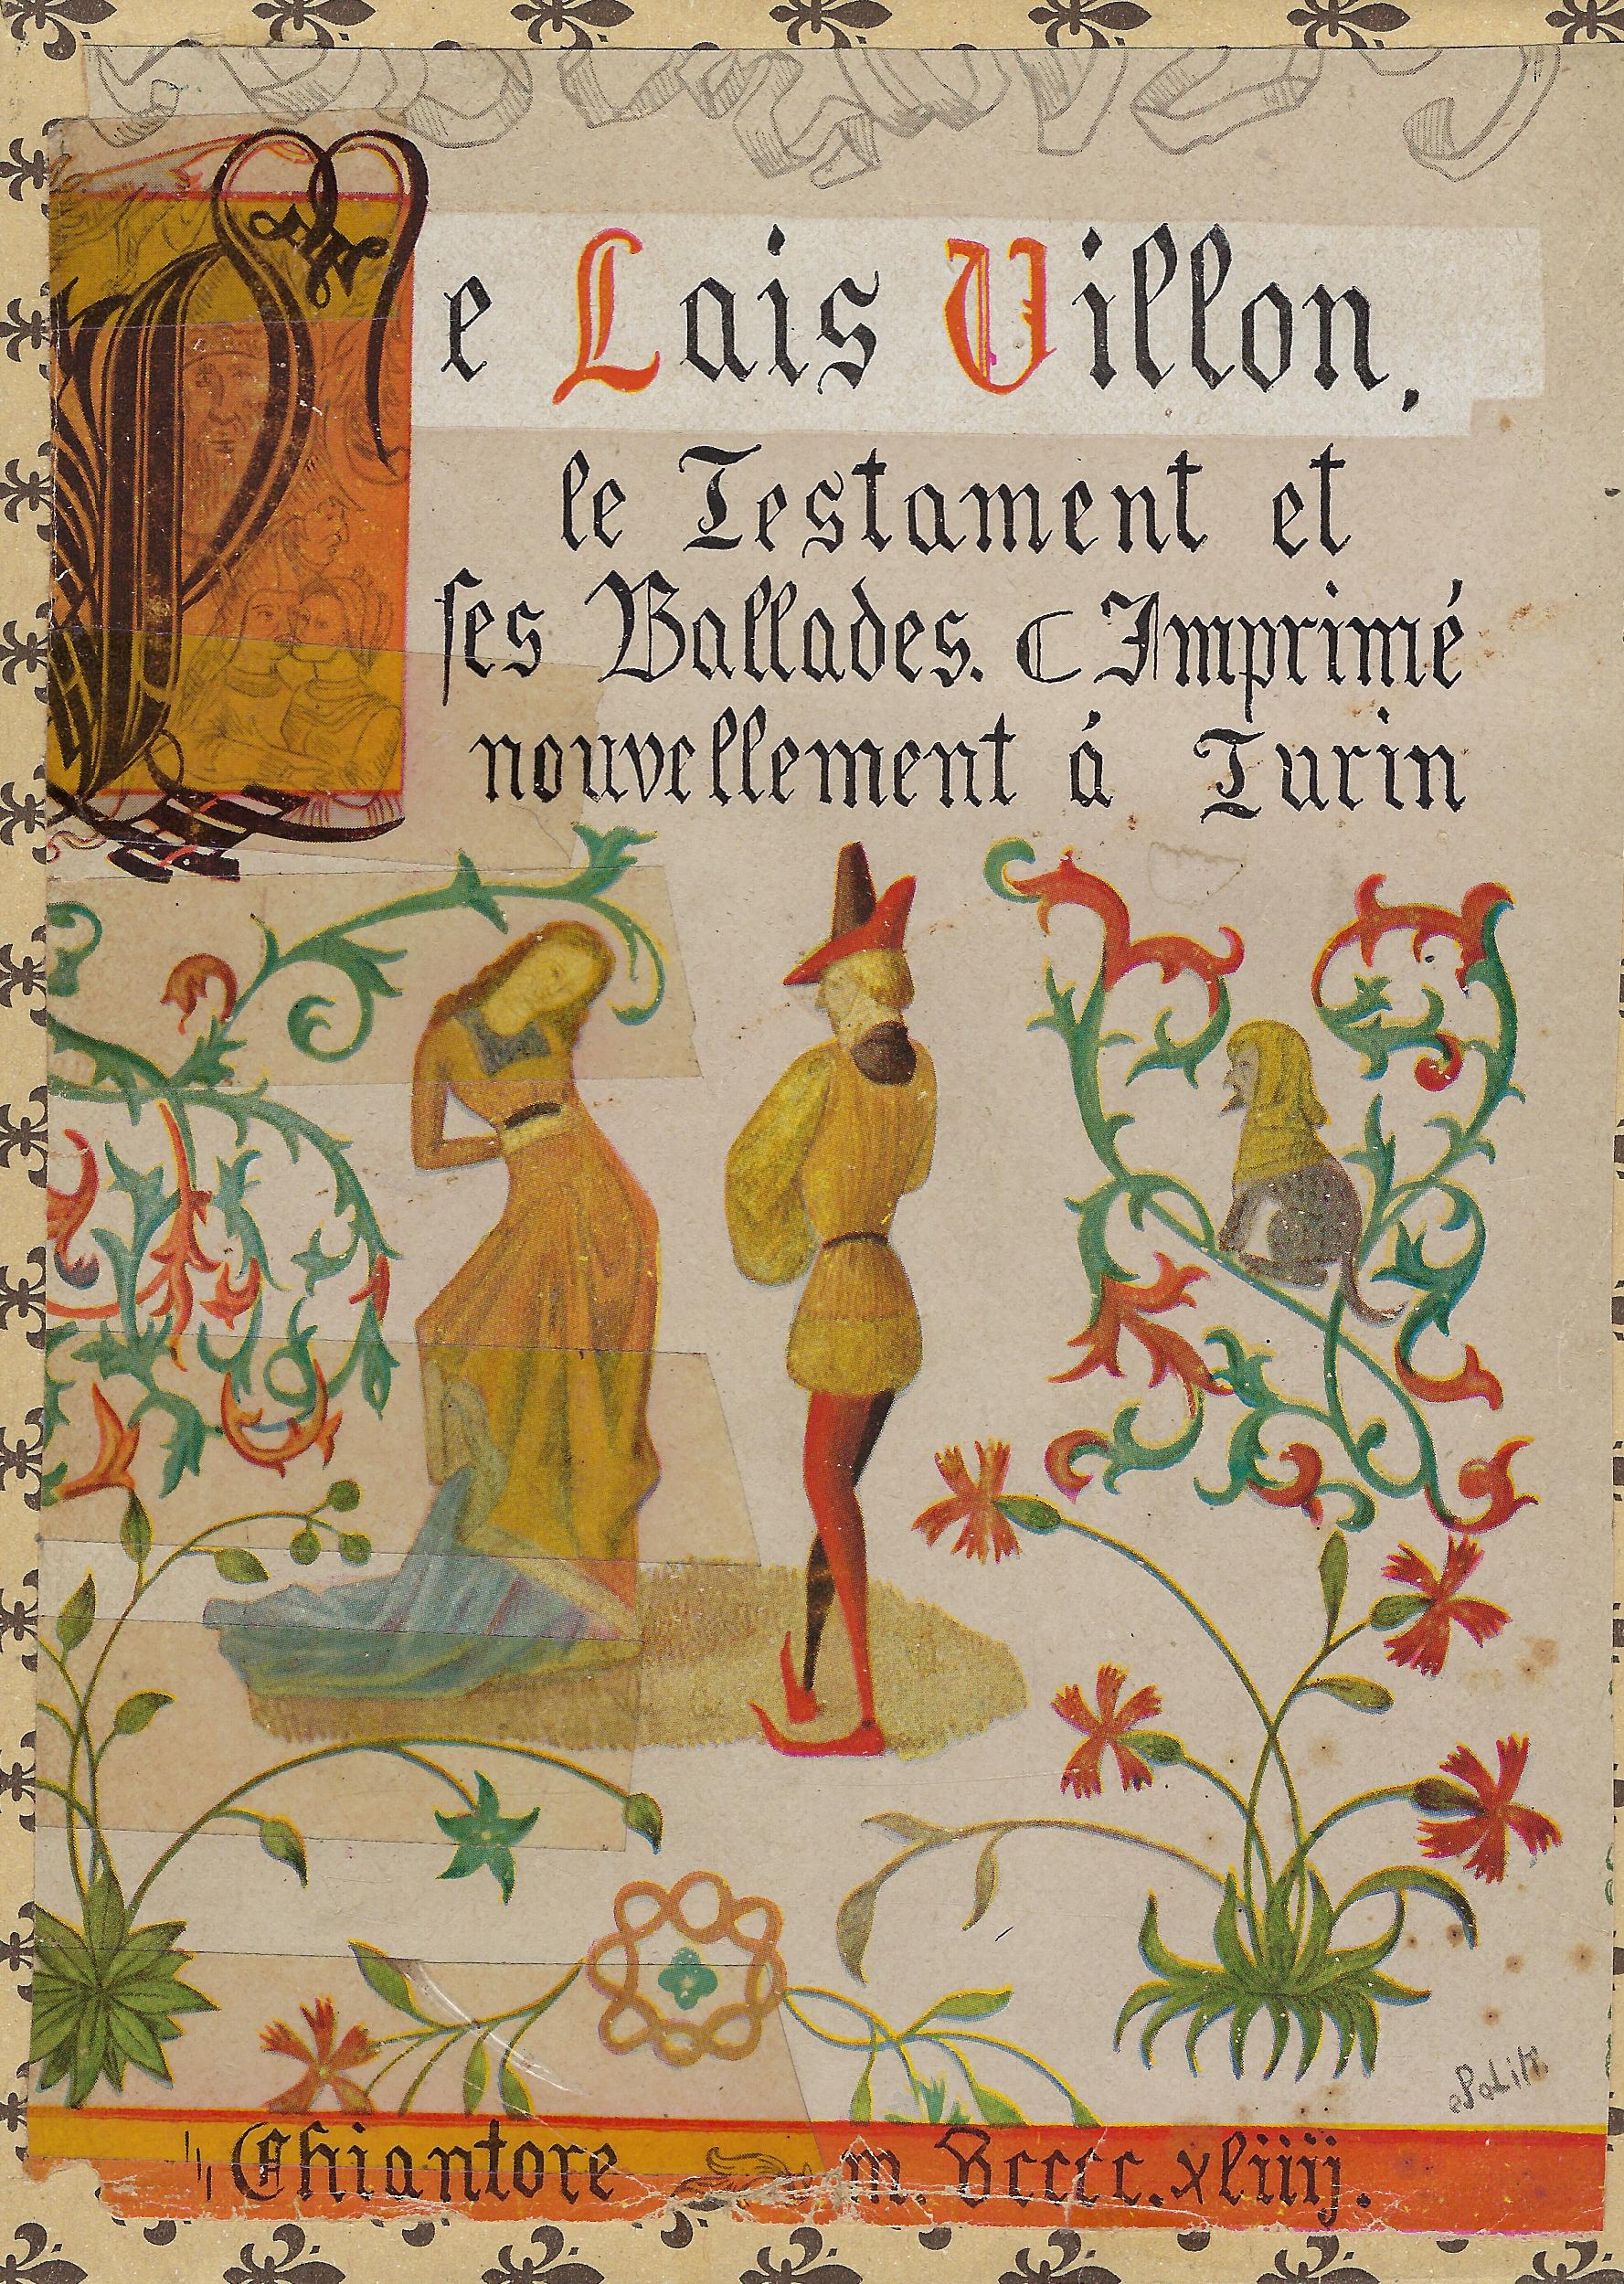 Le Lais Villon,
le Testament et
ſes Ballades. ⊂ Imprimé
nouvellement à Turin
Chiantore m. Dcccc.xliiij.